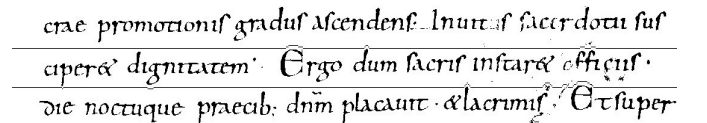 crae promotionis gradus ascendens. Inuitus sacerdotii sus
ciper& dignitatem. Ergo dum sacris instar& officiis.
die noctuque praecib; dnm̄ placauit. & lacrimis. Et super